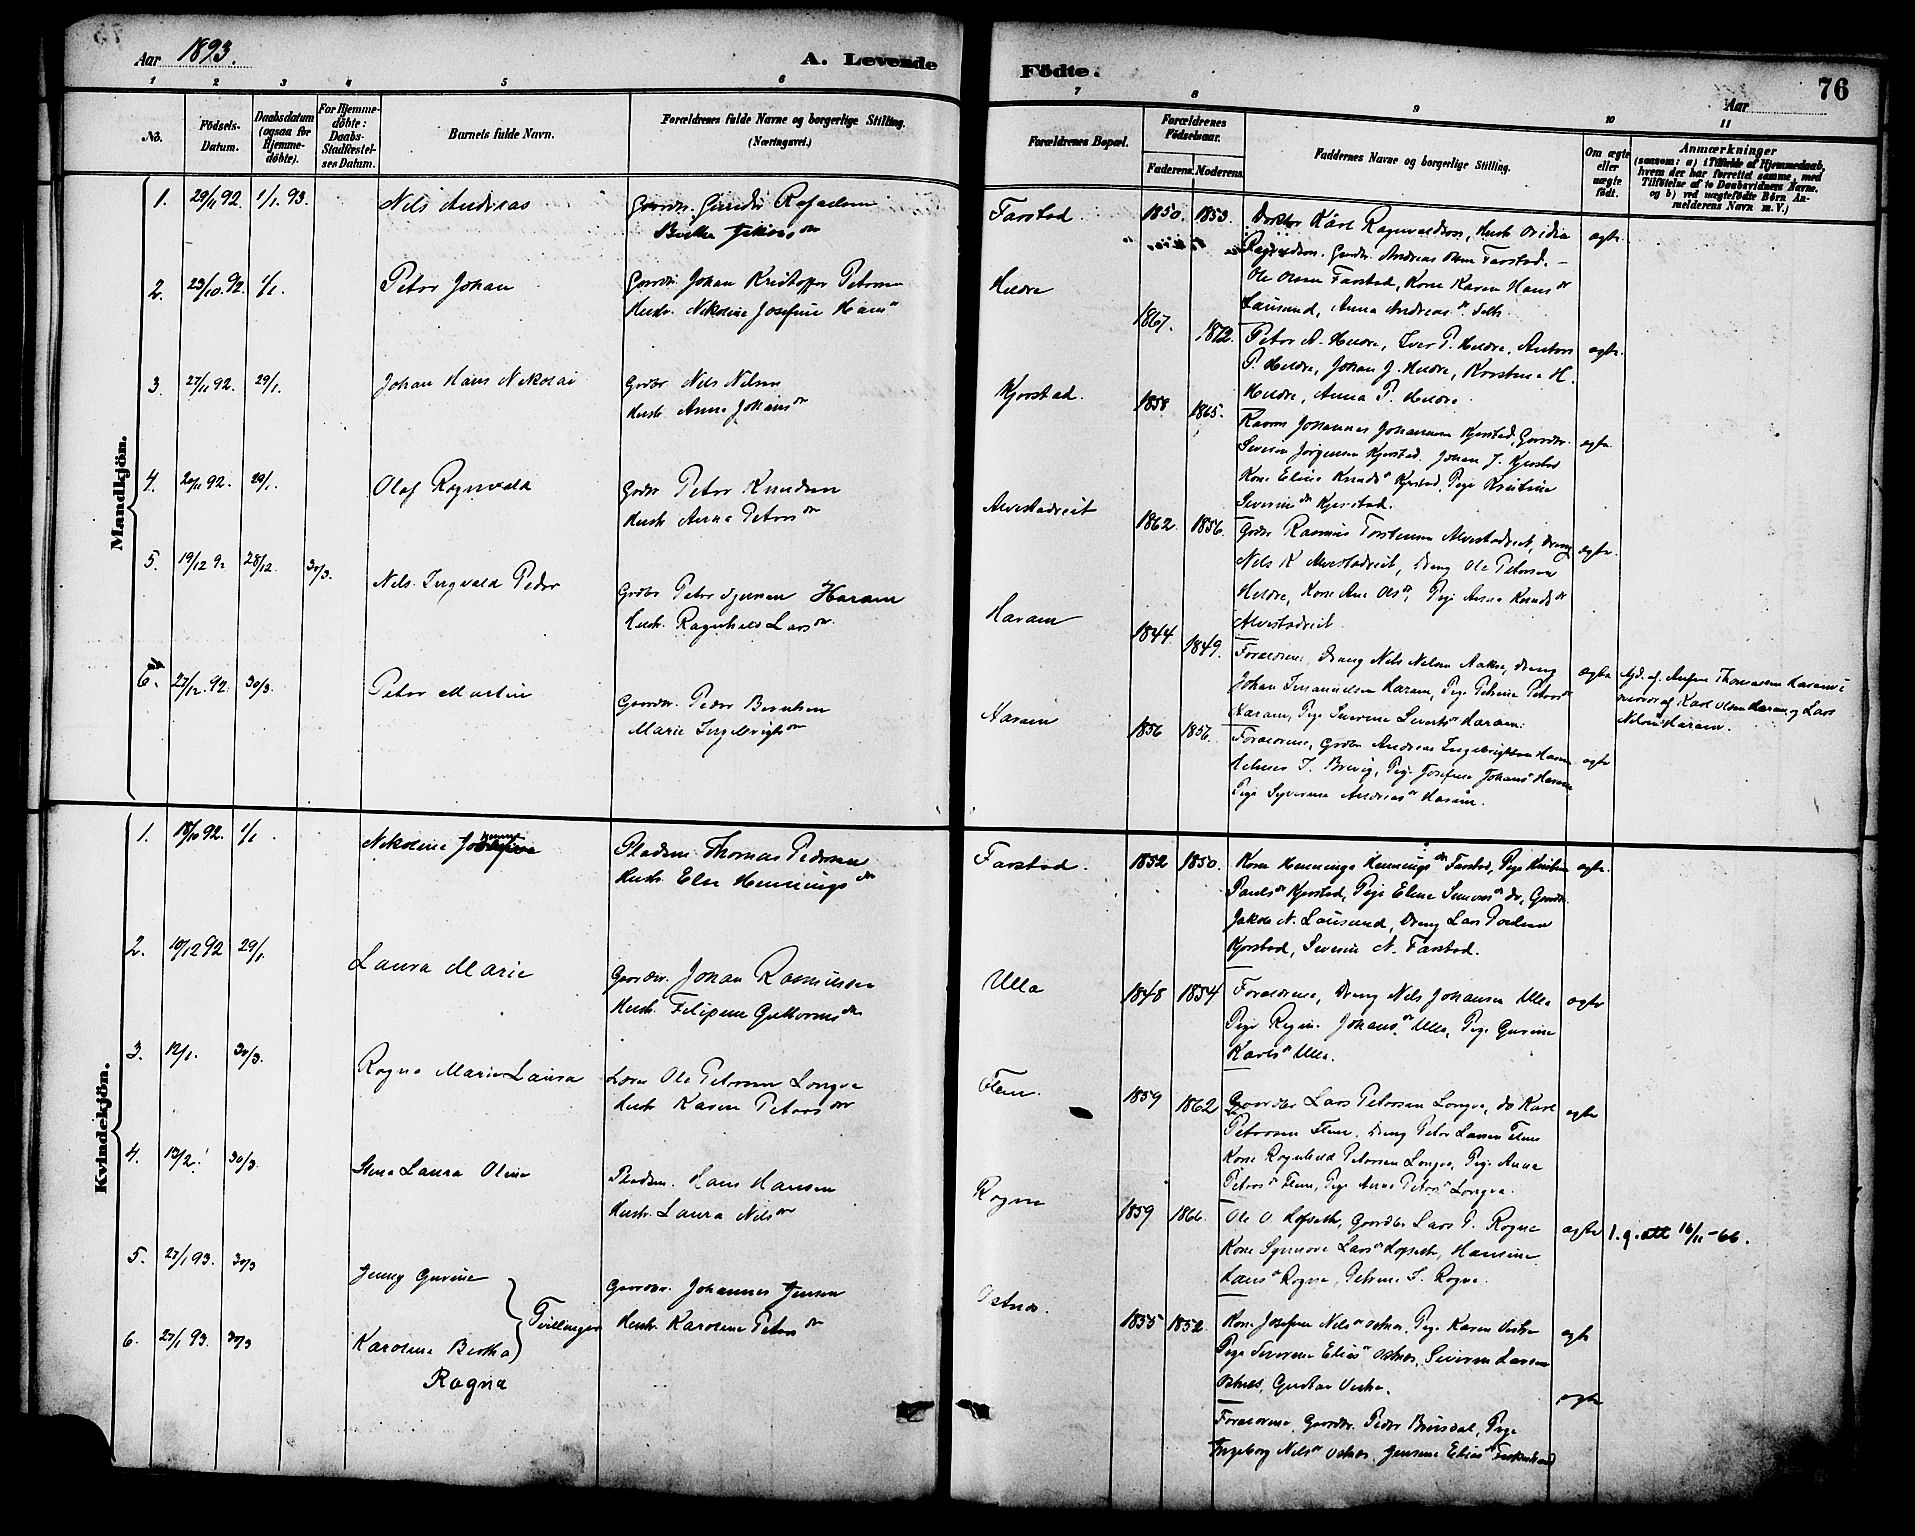 Aar 1893.
A. Levende Födte.
Aar
76
1 2 3 4 5 6 7 8 9 10 11
No.
Födsels-
Datum.
Daabsdatum
(ogsaa for
Hjemme-
döbte).
For Hjemme-
döbte:
Daabs-
Stadfæstel-
ses Datum.
Barnets fulde Navn.
Forældrenes fulde Navne og borgerlige Stilling.
(Næringsvei.)
Forældrenes Bopæl.
Forældrenes
Födselsaar.
Faderens. Moderens.
Faddernes Navne og borgerlige Stilling.
Om ægte
eller
uægte
født.
Anmærkninger
(saasom: a) i Tilfælde af Hjemmedaab,
hvem der har forrettet samme, med
Tilföielse af to Daabsvidners Navne.
og b) ved uægtefödte Börn An-
melderens Navn m. V.)
Mandkjön.
1. 29/11 92. 1/1. 93. Nils Andreas
Farstad. 1850. 1853.
Ragnvaldson. Gaardbr. Andreas Olsen Farstad. –
ægte
2. 23/10. 92. 1/1. Peter Johan
Gaardbr. Johan Kristoffer Petersen
Hustr. Nikoline Josefine Hans"
Hildre 1867. 1872.
Ole Olsen Farstad, Kone Karen Hans dr
Lausund, Anna Andreas dr
Peter A. Hildre, Iver P. Hildre, Anton
P. Hildre, Johan J. Hildre, H.
Hildre, Anna P. Hildre.
ægte
3. 27/11 92. 29/1. Johan Hans Nikolai
Grdbr Nils Nilsen
Hustr. Anna Johans dr
Kjerstad. 1858 1865.
Johannes Johannesen Kjerstad, Gaardbr.
Severin Jörgensen Kjerstad. Johan J. Kjerstad
Kone Eline Knuds dr Kjerstad, Pige Kristine
Severins dr Kjerstad.
ægte
4. 20/11 92. 29/1. Olaf Ragnvald
Grdbr Peter Knudsen
Hustr. Anna Peters dr
Alvestadreit 1862. 1856.
Grdbr Rasmus Torstensen Alvestadreit, Dreng
Nils K Alvestadreit, Dreng Ole Petersen
Hildre, Kone Ane Ols dr, Pige Anna Knuds dr
Alvestadreit.
ægte
5. 19/12 92 28/12. 30/3. Nils Ingvald Peder
Grdbr Peter Haram
Hustr. Ragnhild Lars dr
Haram 1844. 1849.
Forældrene, Dreng Nils Nilsen Aakre, Dreng
Johan Haram, Pige Petrine Peters dr
Haram, Pige Severine Severts dr Haram.
ægte
Thomassen Haram i
nærvær af Karl Olsen Haram og Lars
Nilsen Haram.
6. 27/12. 92. 30/3. Peter Martin
Gaardbr. Peder Berntsen
Marie Ingebrigts dr
Haram 1856 1857.
Forældrene, Grdbr Andreas Ingebrigtsen Haram
J. Brevig, Pige Josefine Johans dr Haram
Pige Syverine Andreas dr Haram.
ægte
Kvindekjön.
1. 18/10 92. 1/1 Nikoline
Pladsm. Thomas Pedersen
Hustr. Else Hennings dr
Farstad. 1852 1850.
Kone Hennings dr Farstad, Pige Kristine
Pauls dr Kjerstad, Pige Eline do, Gaardbr.
Jakob N. Lausund, Dreng Lars Poulsen
Kjerstad, Severin N. Farstad.
ægte
2. 10/12 92 29/1. Laura Marie
Gaardbr. Johan Rasmussen
Hustr. Filipine Guttorms dr
Ulla 1848 1854
Forældrene, Dreng Nils Johansen Ulla
Pige Regine Johans dr Ulla, Pige Gurine
Karls dr Ulla.
ægte
3. 12/1. 30/3. Ragna Marie Laura
Lærer Ole Petersen Longva
Hustr Karen Peters dr
Flem. 1859 1862
Gaardbr Lars Petersen Longva, do Karl
Petersen Flem. Dreng Peter Larsen Flem
Kone Ragnhild Petersen Longva, Pige Anna
Peters dr Flem, Pige Anna Peters dr Longva.
ægte
4. 13/2. 30/3. Laura Oline
Pladsm. Hans Hansen
Hustr. Laura Nils dr
Rogne 1859 1866.
Ole O. Hofseth, Gaardbr Lars P. Rogne
Kone Synnöve Lars dr Hofseth, Hansine
Hans dr Rogne, Petrine S. Rogne.
ægte 16/11-66.
5. 27/1 93. 30/3 Jenny Gurine
Tvillinger
Gaardbr. Johannes Jensen
Hustr. Karoline Peters dr
Östnes. 1855 1852.
Kone Josefine Nils dr Östnes, Pige Karen
Pige Severine Elias dr Östnes, Severin Larsen
Östnes, Gustav
ægte
6. 27/1 93. 30/3 Karoline Bertha
Ragna
Forældrene, Gaardbr. Peder Brusdal, Pige
Ingeborg Nils dr Östnes, Jensine Elias dr
ægte